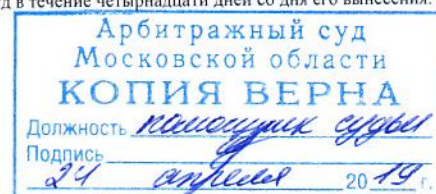 д в течение четырнадцати дней со дня его вынесения.
Арбитражный суд
Московской области
КОПИЯ ВЕРНА
Должность помощник судьи
Подпись
24 апреля 2019 г.